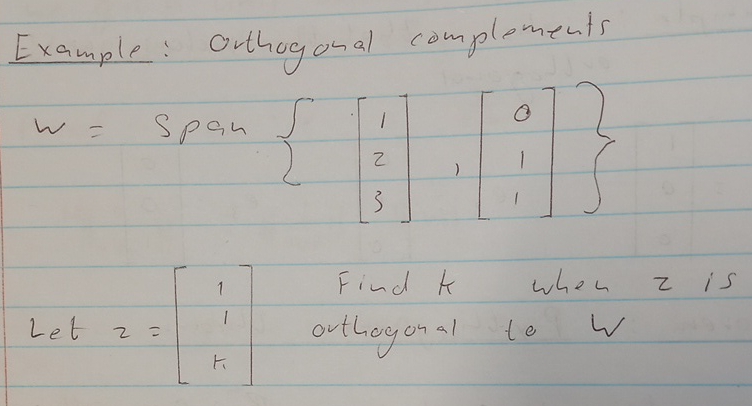 Example: Orthogonal complements
W = Span { [1 2 3] , [0 1 1] }
Let z = [1 1 k] Find k when z is
orthogonal to W